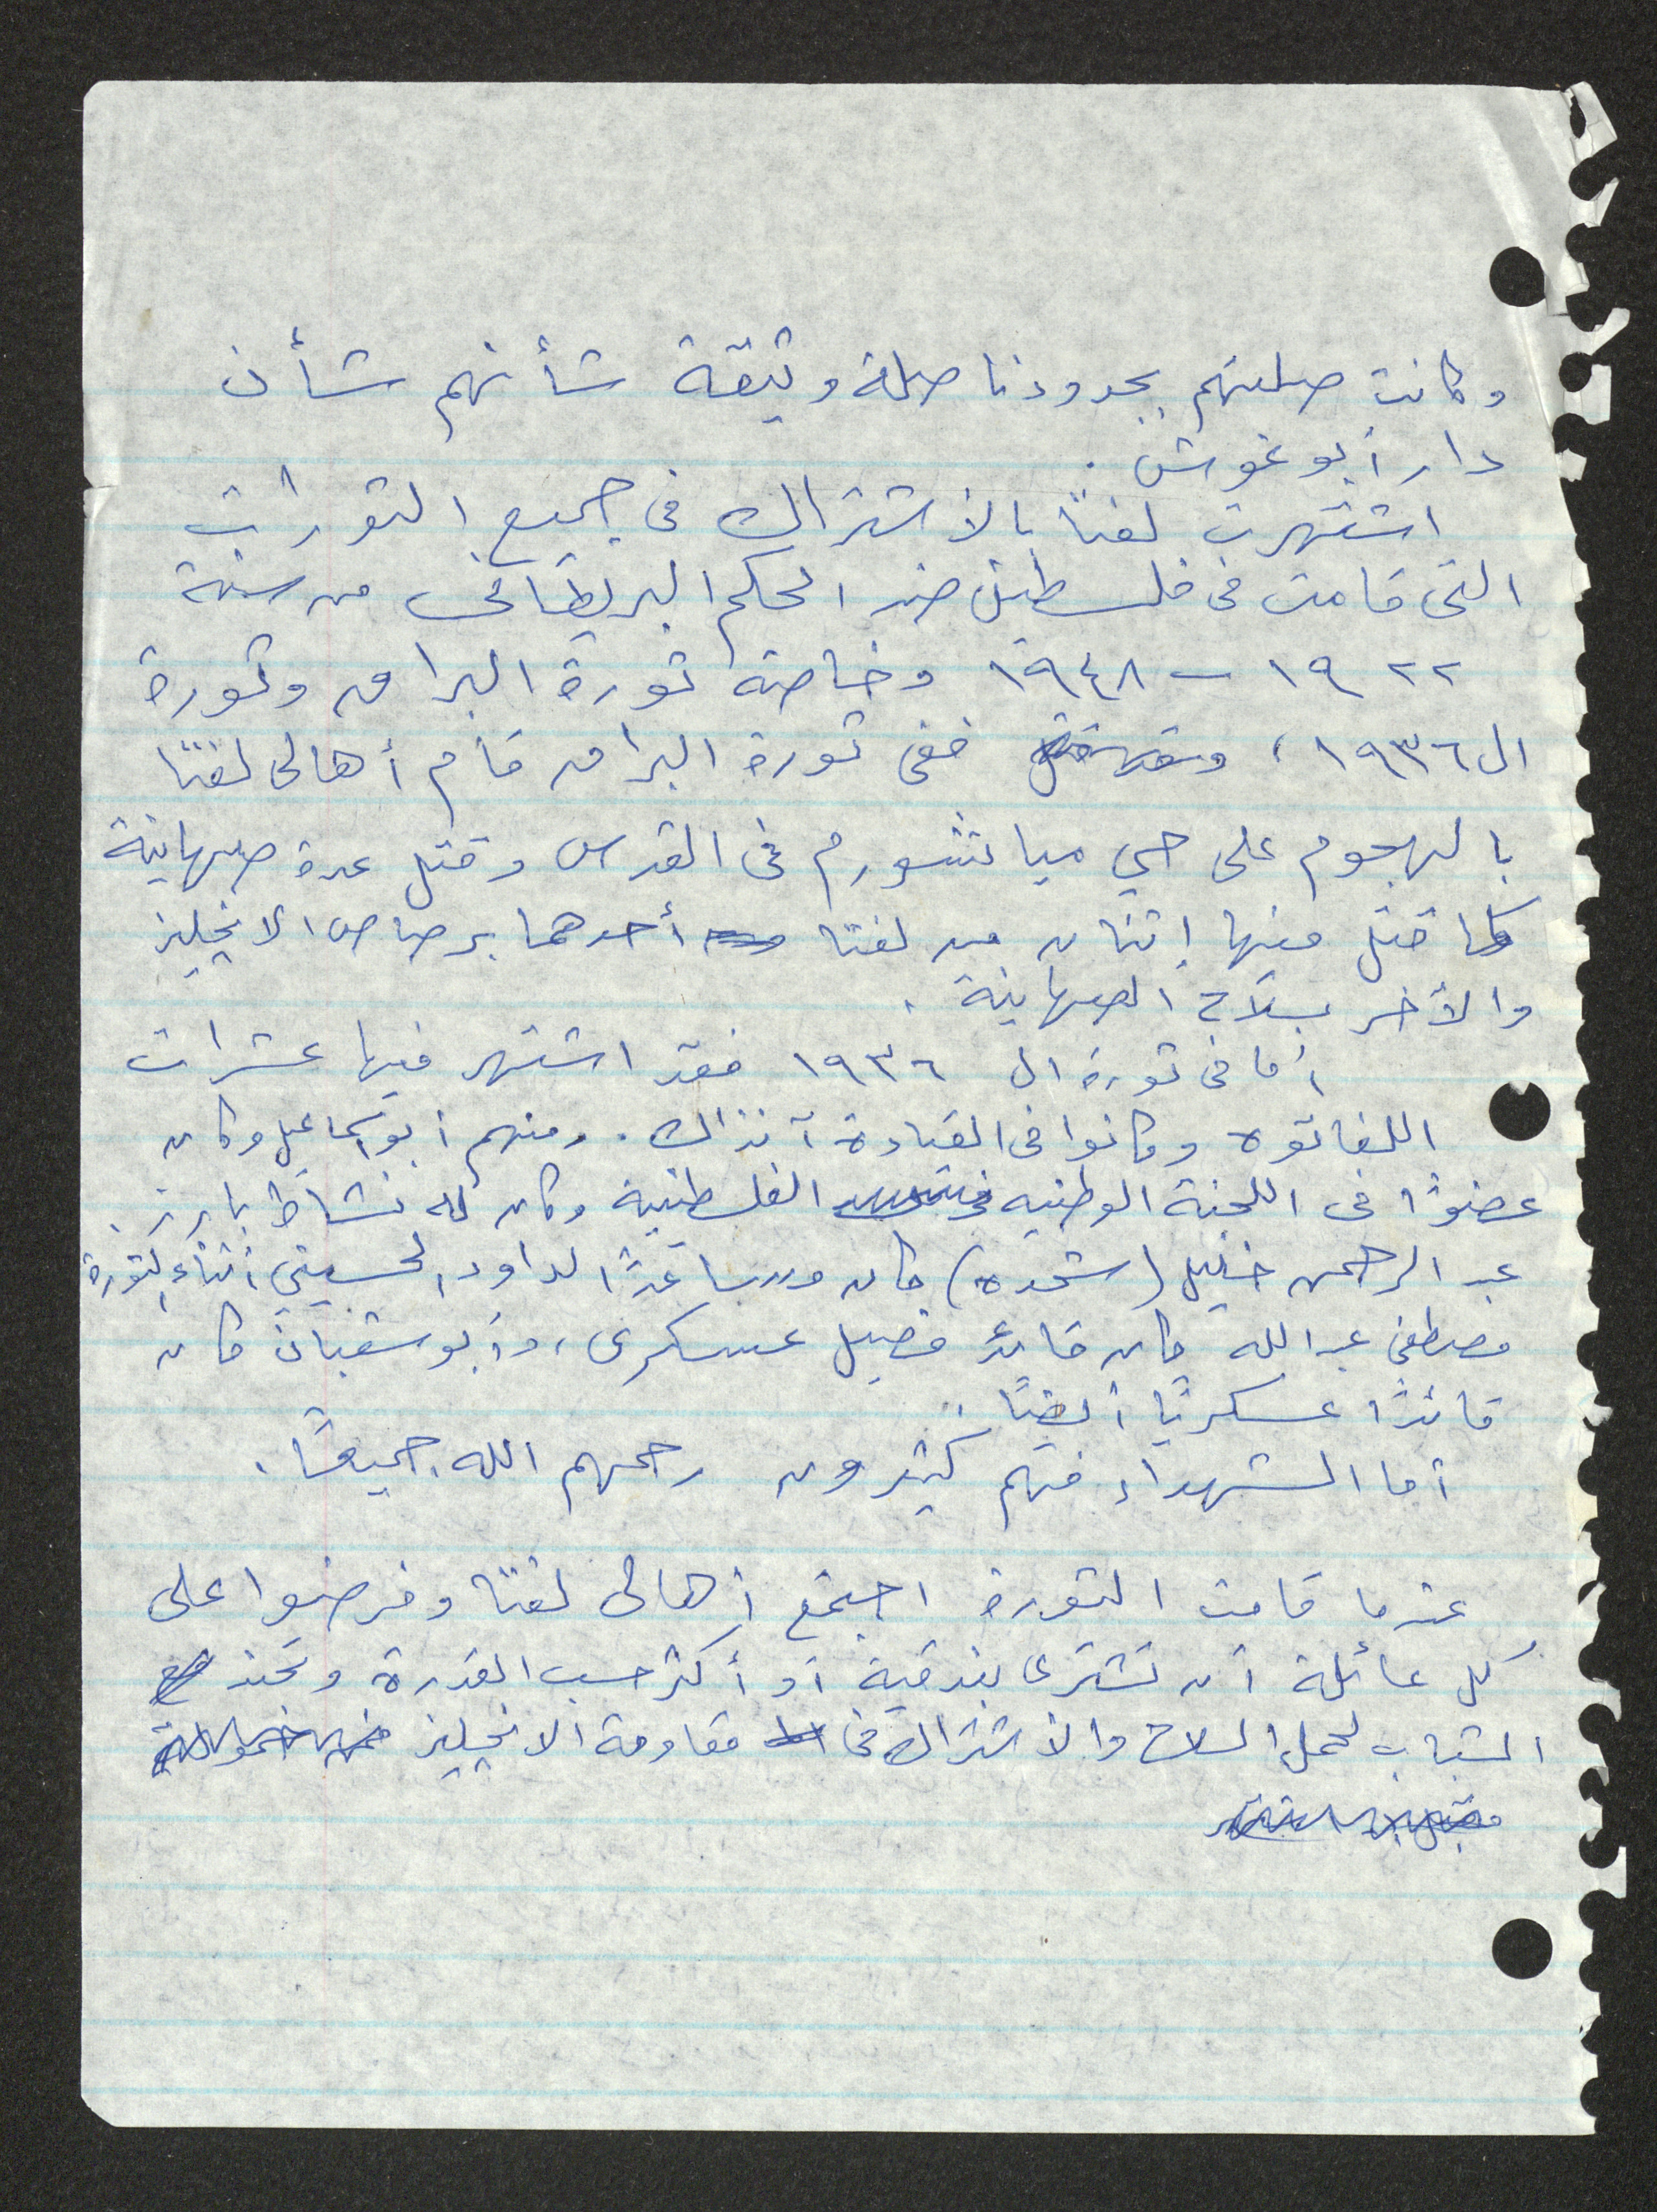 وكانت صلتهم بجدودنا صلة وثيقة شأنهم شأن
دار أبو غوش.
اشتهرت لفتا بالاشتراك فى جميع الثورات
التى قامت فى فلسطين ضد الحكم البريطانى من سنة
١٩٢٢ - ١٩٤٨ وخاصة ثورة البراق وثورة
ال ١٩٣٦، ففى ثورة البراق قام أهالى لفتا
بالهجوم على حي مياشورم فى القدس وقتل عدة صهاينة
كما قتل منها إثنان من لفتا أحدهما برصاص الانجليز
والآخر بسلاح الصهاينة.
أما فى ثورة ال ١٩٣٦ فقد اشتهر فيها عشرات
اللفاتوه وكانوا فى القيادة آنذاك. ومنهم أبو اسماعيل وكان
عضوًا فى اللجنة الوطنيه الفلسطنية وكان له نشاط بارز.
عبد الرحمن خليل (شحده) كان مساعدًا لداود الحسيني أثناء الثورة
مصطفى عبد الله كان قائد فصيل عسكرى، وأبو سفيان كان
قائدًا عسكريًا أيضًا.
أما الشهداء فهم كثيرون رحمهم الله جميعًا.
عندما قامت الثورة اجتمع أهالى لفتا وفرضوا على
كل عائلة أن تشترى بندقية أو أكثر حسب القدرة وتجند
الشباب لحمل السلاح والاشتراك فى مقاومة الانجليز